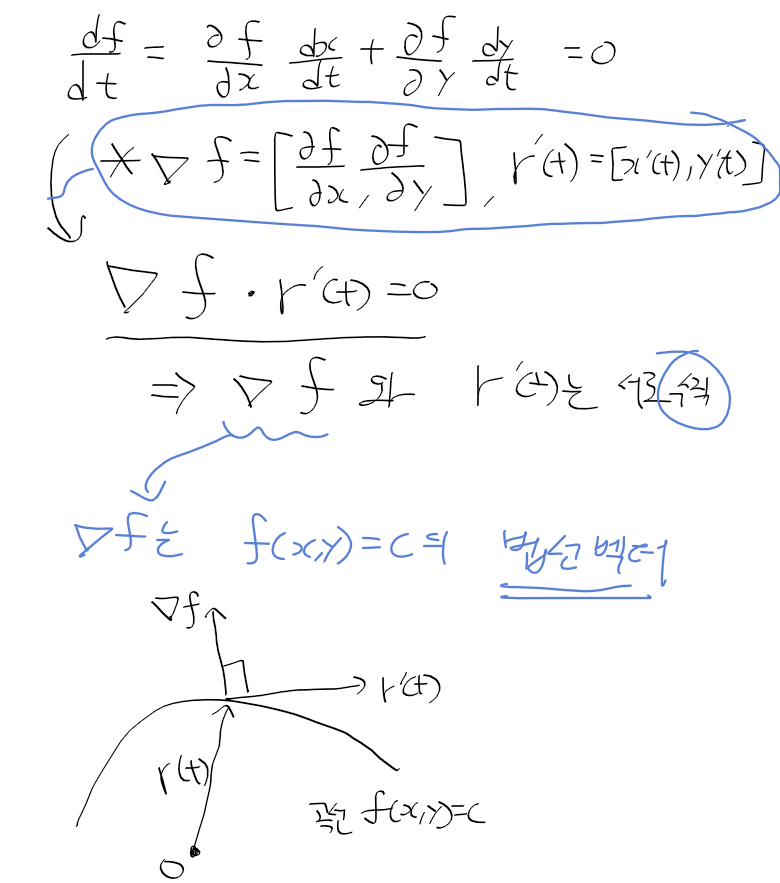 df/dt = ∂f/∂x dx/dt + ∂f/∂y dy/dt = 0
* ∇f = [∂f/∂x, ∂f/∂y], r'(t) = [x'(t), y'(t)]
∇f · r'(t) = 0
⇒ ∇f 와 r'(t)는 서로 수직
∇f는 f(x,y) = c의 법선 벡터
∇f
r'(t)
r(t)
곡선 f(x,y)=c
O